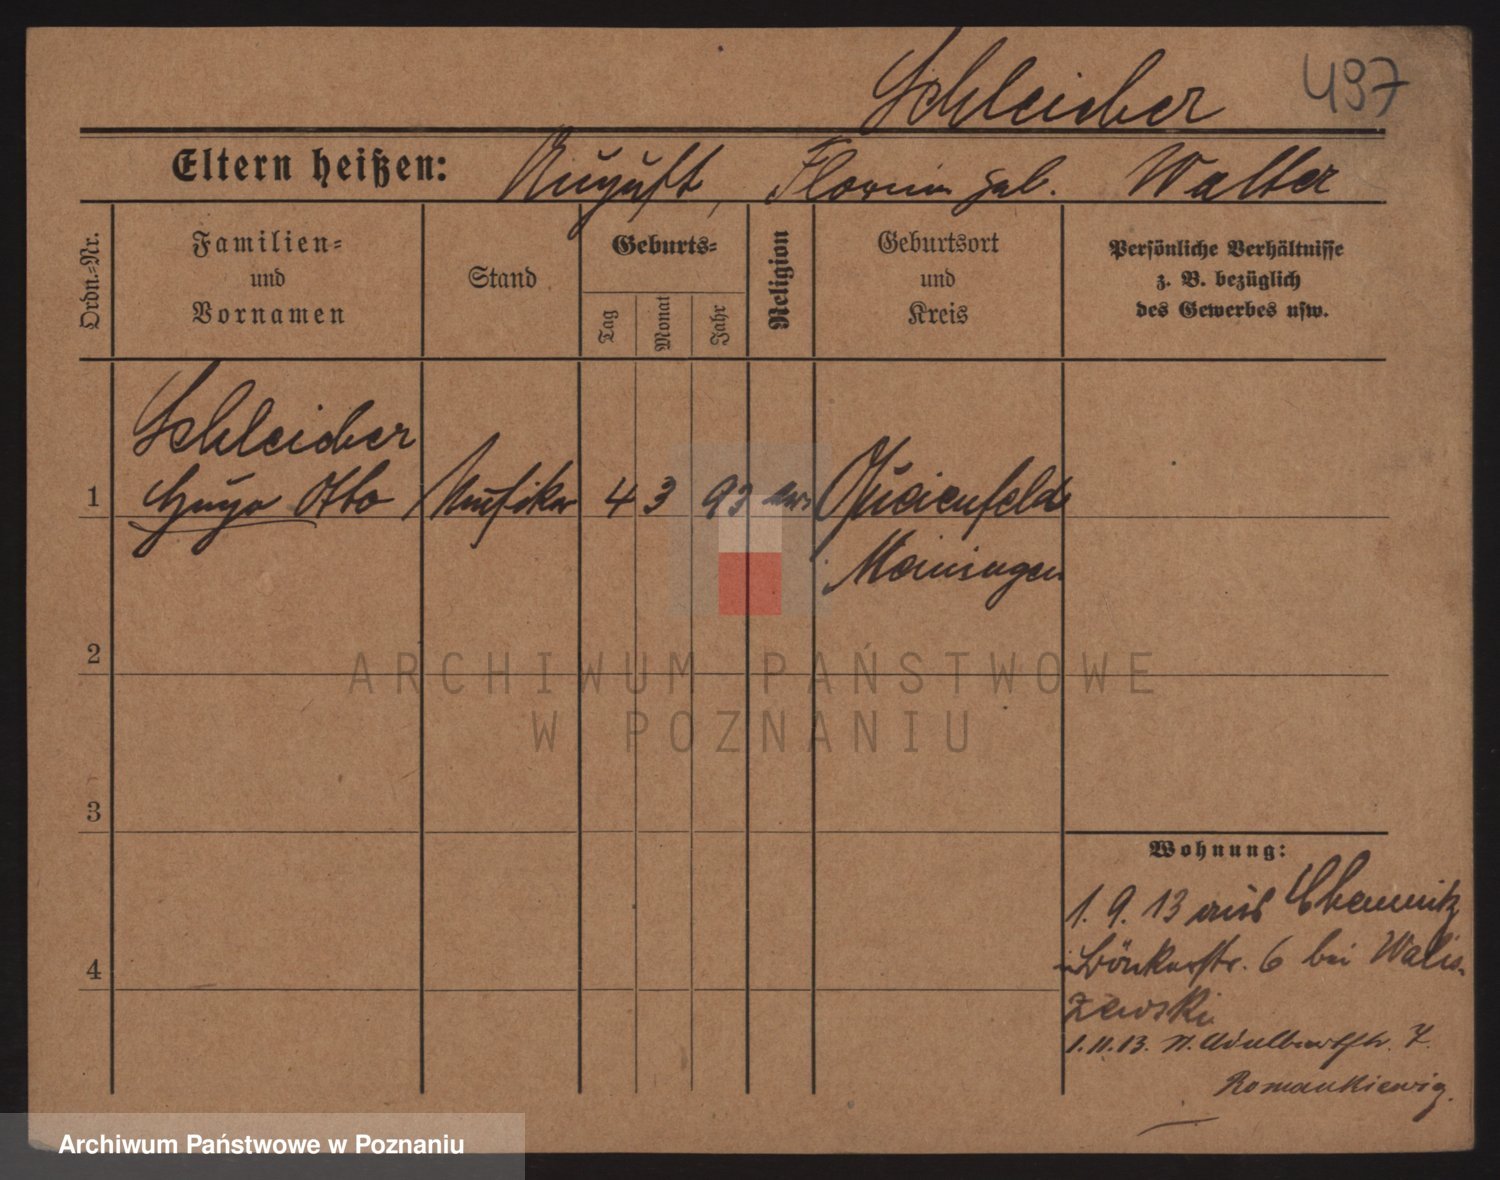 Schleicher 497
Eltern heißen: August, Florine geb. Walter
Ordn.-Nr.
Familien-
und
Vornamen
Stand
Geburts-
Tag
Monat
Jahr
Religion
Geburtsort
und
Kreis
Persönliche Verhältnisse
z. B. bezüglich
des Gewerbes usw.
Schleicher
1 Hugo Otto Musiker 4 3 93 Queienfeld
Meiningen
2
3
4
Wohnung:
1. 9. 13 aus Chemnitz
Bäckerstr. 6 bei Walis-
zewski
1. 11. 13. St. Adalbertstr. 7.
Romankiewiz.
ARCHIWUM PAŃSTWOWE
W POZNANIU
Archiwum Państwowe w Poznaniu